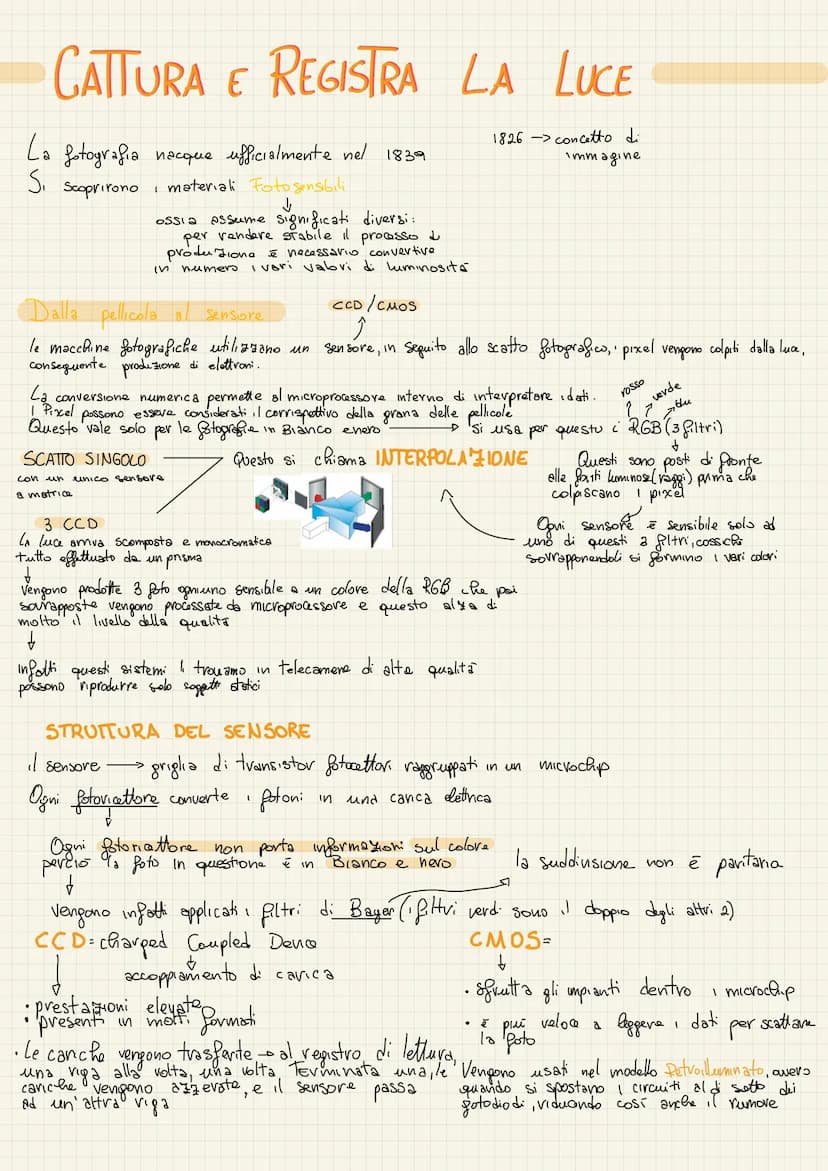 CATTURA E REGISTRA LA LUCE
La fotografia nacque ufficialmente nel 1839
1826 → concetto di
immagine
Si scoprirono i materiali Fotosensibili
ossia assume significati diversi:
per rendere stabile il processo di
produzione è necessario convertire
in numero i vari valori di luminosità
Dalla pellicola al sensore
CCD/CMOS
le macchine fotografiche utilizzano un sensore, in seguito allo scatto fotografico, i pixel vengono colpiti dalla luce,
conseguente produzione di elettroni.
La conversione numerica permette al microprocessore interno di interpretare i dati.
I Pixel possono essere considerati il corrispettivo della grana delle pellicole
Questo vale solo per le fotografie in Bianco e nero → si usa per questo i RGB (3 filtri)
rosso
verde
blu
SCATTO SINGOLO
con un unico sensore
a matrice
Questo si chiama INTERPOLAZIONE
Questi sono posti di fronte
alle fonti luminose (raggi) prima che
colpiscano i pixel
Ogni sensore è sensibile solo ad
uno di questi 3 filtri, cosicché
sovrapponendoli si formino i vari colori
3 CCD
La luce arriva scomposta e monocromatica
tutto effettuato da un prisma
Vengono prodotte 3 foto ogniuno sensibile a un colore della RGB che poi
sovrapposte vengono processate da microprocessore e questo alza di
molto il livello della qualità
Infatti questi sistemi li troviamo in telecamere di alta qualità
possono riprodurre solo soggetti statici
STRUTTURA DEL SENSORE
il sensore → griglia di transistor fotocettori raggruppati in un microchip
Ogni fotoricettore converte i fotoni in una carica elettrica
Ogni fotoricettore non porta informazioni sul colore
perciò la foto in questione è in Bianco e nero
la suddivisione non è paritaria
Vengono infatti applicati i filtri di Bayer (i filtri verdi sono il doppio degli altri 2)
CCD = charped Coupled Device
accoppiamento di carica
• prestazioni elevate
• presenti in molti formati
• Le cariche vengono trasferite → al registro di lettura,
una riga alla volta, una volta Terminata una, le
cariche vengono azzerate, e il sensore passa
ad un'altra riga
CMOS=
• sfrutta gli impianti dentro i microchip
• è più veloce a leggere i dati per scattare
la foto
Vengono usati nel modello Retroilluminato, ovvero
quando si spostano i circuiti al di sotto dei
fotodiodi, riducendo così anche il rumore